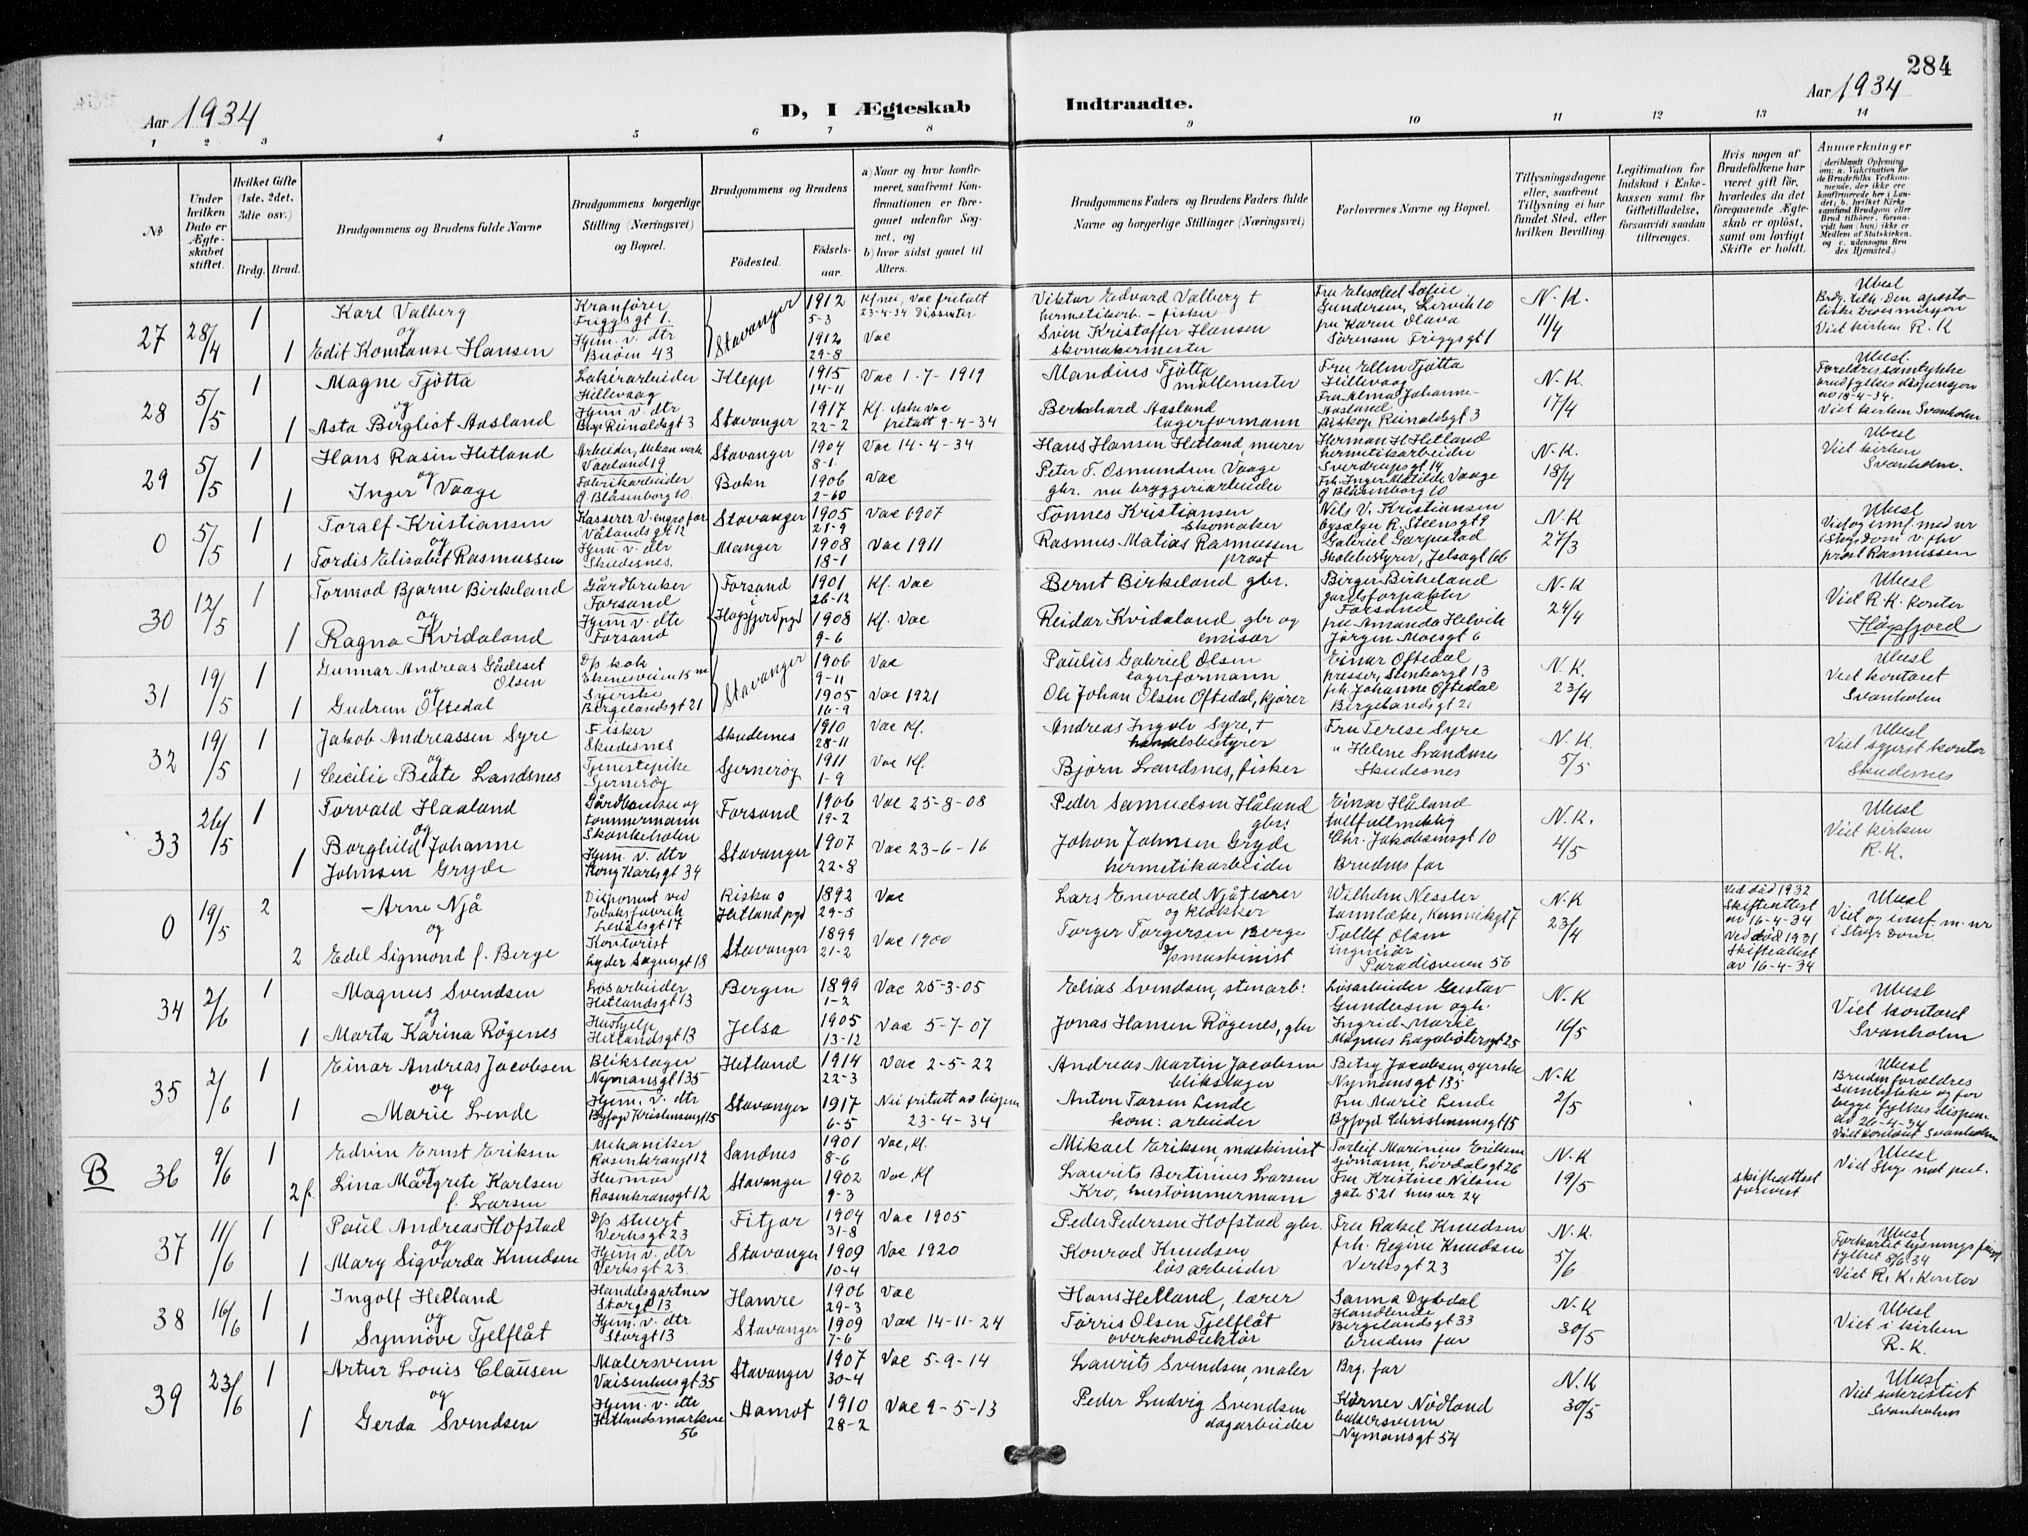 284
Aar 1934
D, I Ægteskab Indtraadte.
Aar 1934
1 2 3 4 5 6 7 8 9 10 11 12 13 14
№
Under hvilken Dato er Ægteskabet stiftet.
Hvilket Gifte (1ste, 2det, 3die osv.)
Brdg. Brud.
Brudgommens og Brudens fulde Navne
Brudgommens borgerlige Stilling (Næringsvei) og Bopæl.
Brudgommens og Brudens
Fødested. Fødselsaar.
a) Naar og hvor konfirmeret, saafremt Konfirmationen er foregaaet udenfor Sognet, og b) hvor sidst gaaet til Alters.
Brudgommens Faders og Brudens Faders fulde Navne og borgerlige Stillinger (Næringsvei)
Forlovernes Navne og Bopæl.
Tillysningsdagene eller, saafremt Tillysning ei har fundet Sted, efter hvilken Bevilling.
Legitimation for Indskud i Enkekassen samt for Giftetilladelse, forsaavidt saadan tiltrænges.
Hvis nogen af Brudefolkene har været gift før, hvorledes da det foregaaende Ægteskab er opløst, samt om lovligt Skifte er holdt.
Anmærkninger
27 28/4 1 1
Karl Valberg
og
Edit Konstanse Hansen
Kranfører
Friggsgt 1.
Hjem. v. dtr
Buøen 43
Stavanger
1912
5-3
1912
29-8
Kf nei, Vac fritatt
23-4-34 Dissenter
Vac
Viktor Edvard Valberg +
hermetikarb. - fisker
Sven Kristoffer Hansen
skomakermester
Fru Elisabet Sofie
Gundersen, Lervik 10
fru Karen Olava
Sørensen Friggsgt 1
N. K.
11/4
Ubesl
Viet kirken R. K
28 5/5 1 1
Magne Tjøtta
og
Asta Bergliot Aasland
Lakérarbeider
Hillevaag
Hjem v. dtr
Bisp Reinaldsgt 3
Klepp
Stavanger
1915
14-11
1917
22-2
Vac 1-7-1919
fritatt 9-4-34
Mandius Tjøtta
møllemester
Bernhard Aasland
lagerformann
Fru Ellen Tjøtta
Hillevaag
Fru Alma Johanne
Aasland
Biskop Reinaldsgt 3
N. K.
17/4
Ubesl.
Foreldres samtykke
Viet kirken Svanholm
29 5/5 1 1
Hans Rasin Hetland
og
Inger Vaage
Arbeider, mekan verk
Vaaland 19
Fabrikarbeider
g. Blåsenborg 10.
Stavanger
Bokn
1904
8-1
1906
2-10
Vac 14-4-34
Vac
Hans Hansen Hetland, murer
Peter T. Osmundsen Vaage
gbr. nu bryggeriarbeider
Herman H Hetland
hermetikarbeider
Sverdrupsgt 14
Frk. Inger Matilde Vaage
g Blåsenborg 10
N. K.
18/4
Ubesl
Viet kirken
Svanholm.
0 5/5 1 1
Toralf Kristiansen
og
Tordis Elisabet Rasmussen
Kasserer v. engrosfor
Vålandsgt 12
Hjem v. dtr
Skudesnes.
Stavanger
Manger
1905
21-9
1908
18-1
Vac 1907
Vac 1911
Tønnes Kristiansen
skomaker
Rasmus Matias Rasmussen
prost
Nils V. Kristiansen
bysælger R. Steensgt 9
Gabriel Garpestad
Skolebestyrer, Jelsagt 66
N. K
27/3
Ubesl
i Stg. dom v. fhv
prost Rasmussen
30 12/5 1 1
Tormod Bjarne Birkeland
og
Ragna Kvidaland
Gårdbruker
Forsand
Hjem v. dtr
Forsand
Forsand
Høgsfjord pgd
1901
26-12
1908
9-6
Kf. Vac
Kf. Vac
Bernt Birkeland gbr.
Reidar Kvidaland gbr og
emisær
Birger Birkeland
gardsforpakter
Forsand
fru Amanda Helvik
Jørgen Moesgt 6
N. K
24/4
Ubesl
Viet R. K. kontor
Høgsfjord
31 19/5 1 1
Gunnar Andreas Gådeset
Olsen
og
Gudrun Oftedal
D/s kok
Ekenesveien 15
Syerske
Bergelandsgt 21
Stavanger
1906
9-11
1905
16-9
Vac
Vac 1921
Paulus Gabriel Olsen
lagerformann
Ole Johan Olsen Oftedal, kjører
Einar Oftedal
presser, Stenhorgt 13
frk Johanne Oftedal
Bergelandsgt 21
N. K.
23/4
Ubesl
Viet kontoret
Svanholm
32 19/5 1 1
Jakob Andreassen Syre
og
Cecilie Beate Landsnes
Fisker
Skudesnes
Tjenestepike
Sjernerøy
Skudesnes
Sjernerøy
1910
28-11
1911
1-9
Vac Kf.
Vac Kf.
Andreas Ingolv Syre, +
handelsbestyrer
Bjørn Landsnes, fisker
Fru Terese Syre
" Helene Svandsne
Skudesnes
N. K.
5/5
Ubesl
Viet sgprst kontor
Skudesnes
33 26/5 1 1
Torvald Haaland
og
Borghild Johanne
Johnsen Gryde
tømmermann
Skankeholen
Hjem. v. dtr
Kong Karlsgt 34
Forsand
Stavanger
1906
19-2
1907
22-8
Vac 25-8-08
Vac 23-6-16
Peder Samuelsen Håland
gbr.
Johan Johnsen Gryde
hermetikarbeider
Einar Håland
tollfullmektig
Chr. Jakobsensgt 10
Brudens far
N. K.
4/5
Ubesl
Viet kirken
R. K.
0 19/5 2 2
Arne Njå
og
Edel Sigmond f. Berge
Disponent ved
Tobaksfabrik
Ledålsgt 17
Kontorist
Lyder Sagensgt 18
Riska o
Hetland pgd
Stavanger
1892
29-5
1899
21-2
Vac
Vac 1900
Lars Enevald Njå + lærer
og klokker
Torger Torgersen Berge
D/pmaskinist
Wilhelm Nessler
tannlæke, Kannikgt 7
Tollef Olsen
ingeniør
Paradisveien 56
N. K
23/4
Ved død 1932
Skifteattest
av 16-4-34
Ved død 1931
Skifteattest
av 16-4-34
Ubesl
Viet og innf. m. nr
i Stgr dom.
34 2/6 1 1
Magnus Svendsen
og
Marta Karina Røgenes
Løsarbeider
Hetlandsgt 13
Hushjelp
Hetlandsgt 13
Bergen
Jelsa
1899
1-2
1905
13-12
Vac 25-3-05
Vac 5-7-07
Elias Svendsen, stenarb:
Jonas Hansen Røgenes, gbr
Løsarbeider Gustav
Gundersen og h.
Ingrid Marie
Magnus Lagabøtersgt 25
N. K
16/5
Ubesl
Viet kontoret
Svanholm
35 2/6 1 1
Einar Andreas Jacobsen
og
Marie Lende
Blikslager
Nymansgt 135
Hjem. v. dtr
Byfogd Kristensensgt 15
Hetland
Stavanger
1914
22-3
1917
6-5
Vac 2-5-22
Nei fritatt av bispen
23-4-34
Andreas Martin Jacobsen
blikslager
Anton Torsen Lende
kom: arbeider
Betsy Jacobsen, syerske
Nymansgt 135
Fru Marie Lende
Byfogd Christensensgt 15
N. K
2/5
Ubesl
Bruden foreldres
samtykke og for
begge fylkes dispen.
av 26-4-34
Viet kontoret Svanholm
B 36 9/6 1 2 f.
Edvin Ernst Eriksen
og
Lina Margrete Karlsen
f. Larsen
Mekaniker
Rosenkransgt 12
Husmor
Rosenkransgt 12
Sandnes
Stavanger
1901
8-6
1902
9-3
Vac, Kf.
Vac, Kf
Mikael Eriksen, maskinist
Laurits Bertinius Larsen
Kro, hustømmermann
Torleif Marinius Eriksen
sjømann, Løvdalsgt 26
Fru Kristine Nilsen
gate 521 hus nr 24
N. K
19/5
skifteattest
forevist
Ubesl
37 11/6 1 1
Paul Andreas Hofstad
og
Mary Sigvarda Knudsen
D/s stuert
Verksgt 23
Hjem v. dtr
Verksgt 23.
Fitjar
Stavanger
1904
31-8
1909
10-4
Vac 1905
Vac 1920
Peder Pedersen Hofstad gbr.
Konrad Knudsen
løsarbeider
Fru Rakel Knudsen
frk. Regine Knudsen
Verksgt 23
N. K.
5/6
Ubesl
Forkortet lysnings
fylket 8/6-34
Viet R. K. Kontor
38 16/6 1 1
Ingolf Helland
og
Synnøve Tjelflåt
Handelsgartner
Storgt 13
Hjem. v. dtr
Storgt 13
Hamre
Stavanger
1906
29-3
1909
7-6
Vac
Vac 14-11-24
Hans Helland, lærer
Tørris Olsen Tjelflåt
overkonduktør
Sanna Dybdal
Handlende
Bergelandsgt 33
Brudens far
N. K
30/5
Ubesl
Viet i kirken
R. K.
39 23/6 1 1
Artur Louis Clausen
og
Gerda Svendsen
Malersvenn
Vaisenhusgt 35
Hjem. v. dtr
Hetlandsmarken
56
Stavanger
Aamot
1907
30-4
1910
28-2
Vac 5-9-14
Vac 9-5-13
Laurits Svendsen, maler
Peder Ludvig Svendsen
dagarbeider
Brg. far
Kørner Nødland
bakersvenn
Nymansgt 54
N. K
30/5
Ubesl
Viet sakristiet
Svanholm